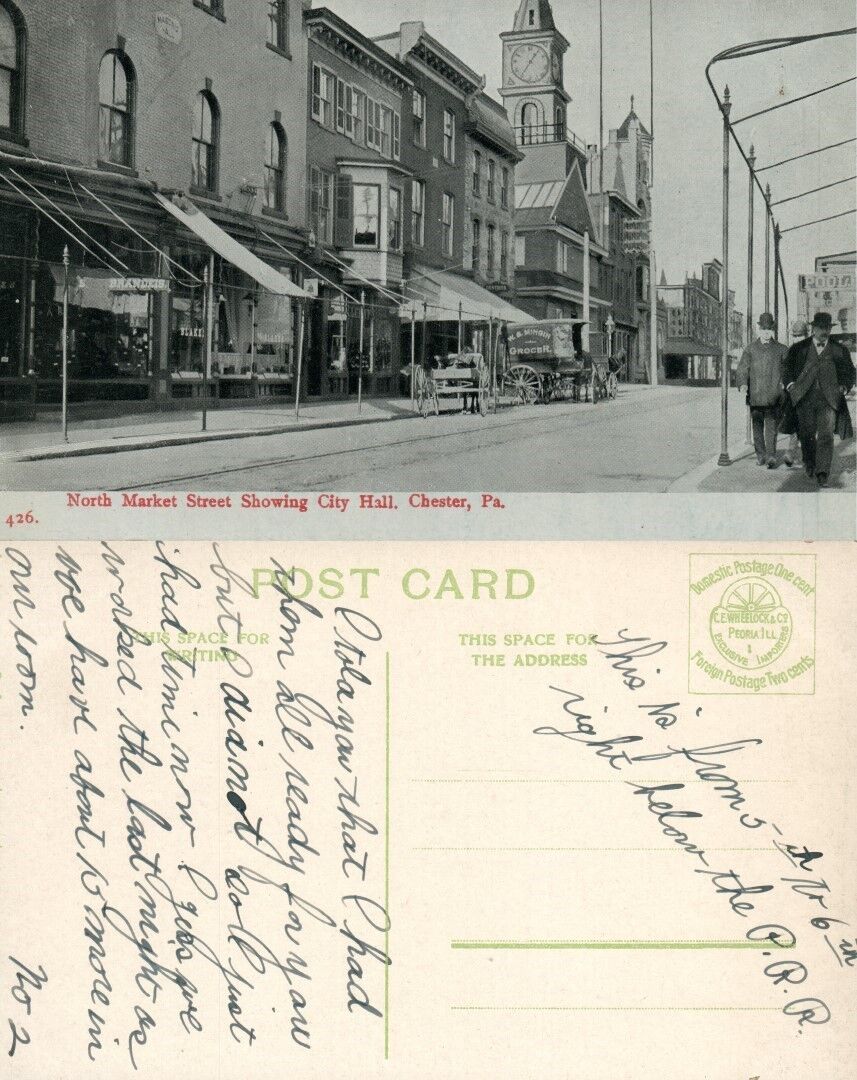 BRANDEIS
BLAKE
W. B. MINGIN
GROCER
426.
North Market Street Showing City Hall. Chester, Pa.
POST CARD
THIS SPACE FOR
WRITING
THIS SPACE FOR
THE ADDRESS
Domestic Postage One cent
C.E. WHEELOCK & CO
PEORIA ILL
EXCLUSIVE IMPORTERS
Foreign Postage Two cents
I told you that I had
them all ready for you
but I did not so I just
had time now I guess we
worked the last night as
we have about 10 more in
our room.
No 2
This is from 5-th to 6th
right below the P.R.R.